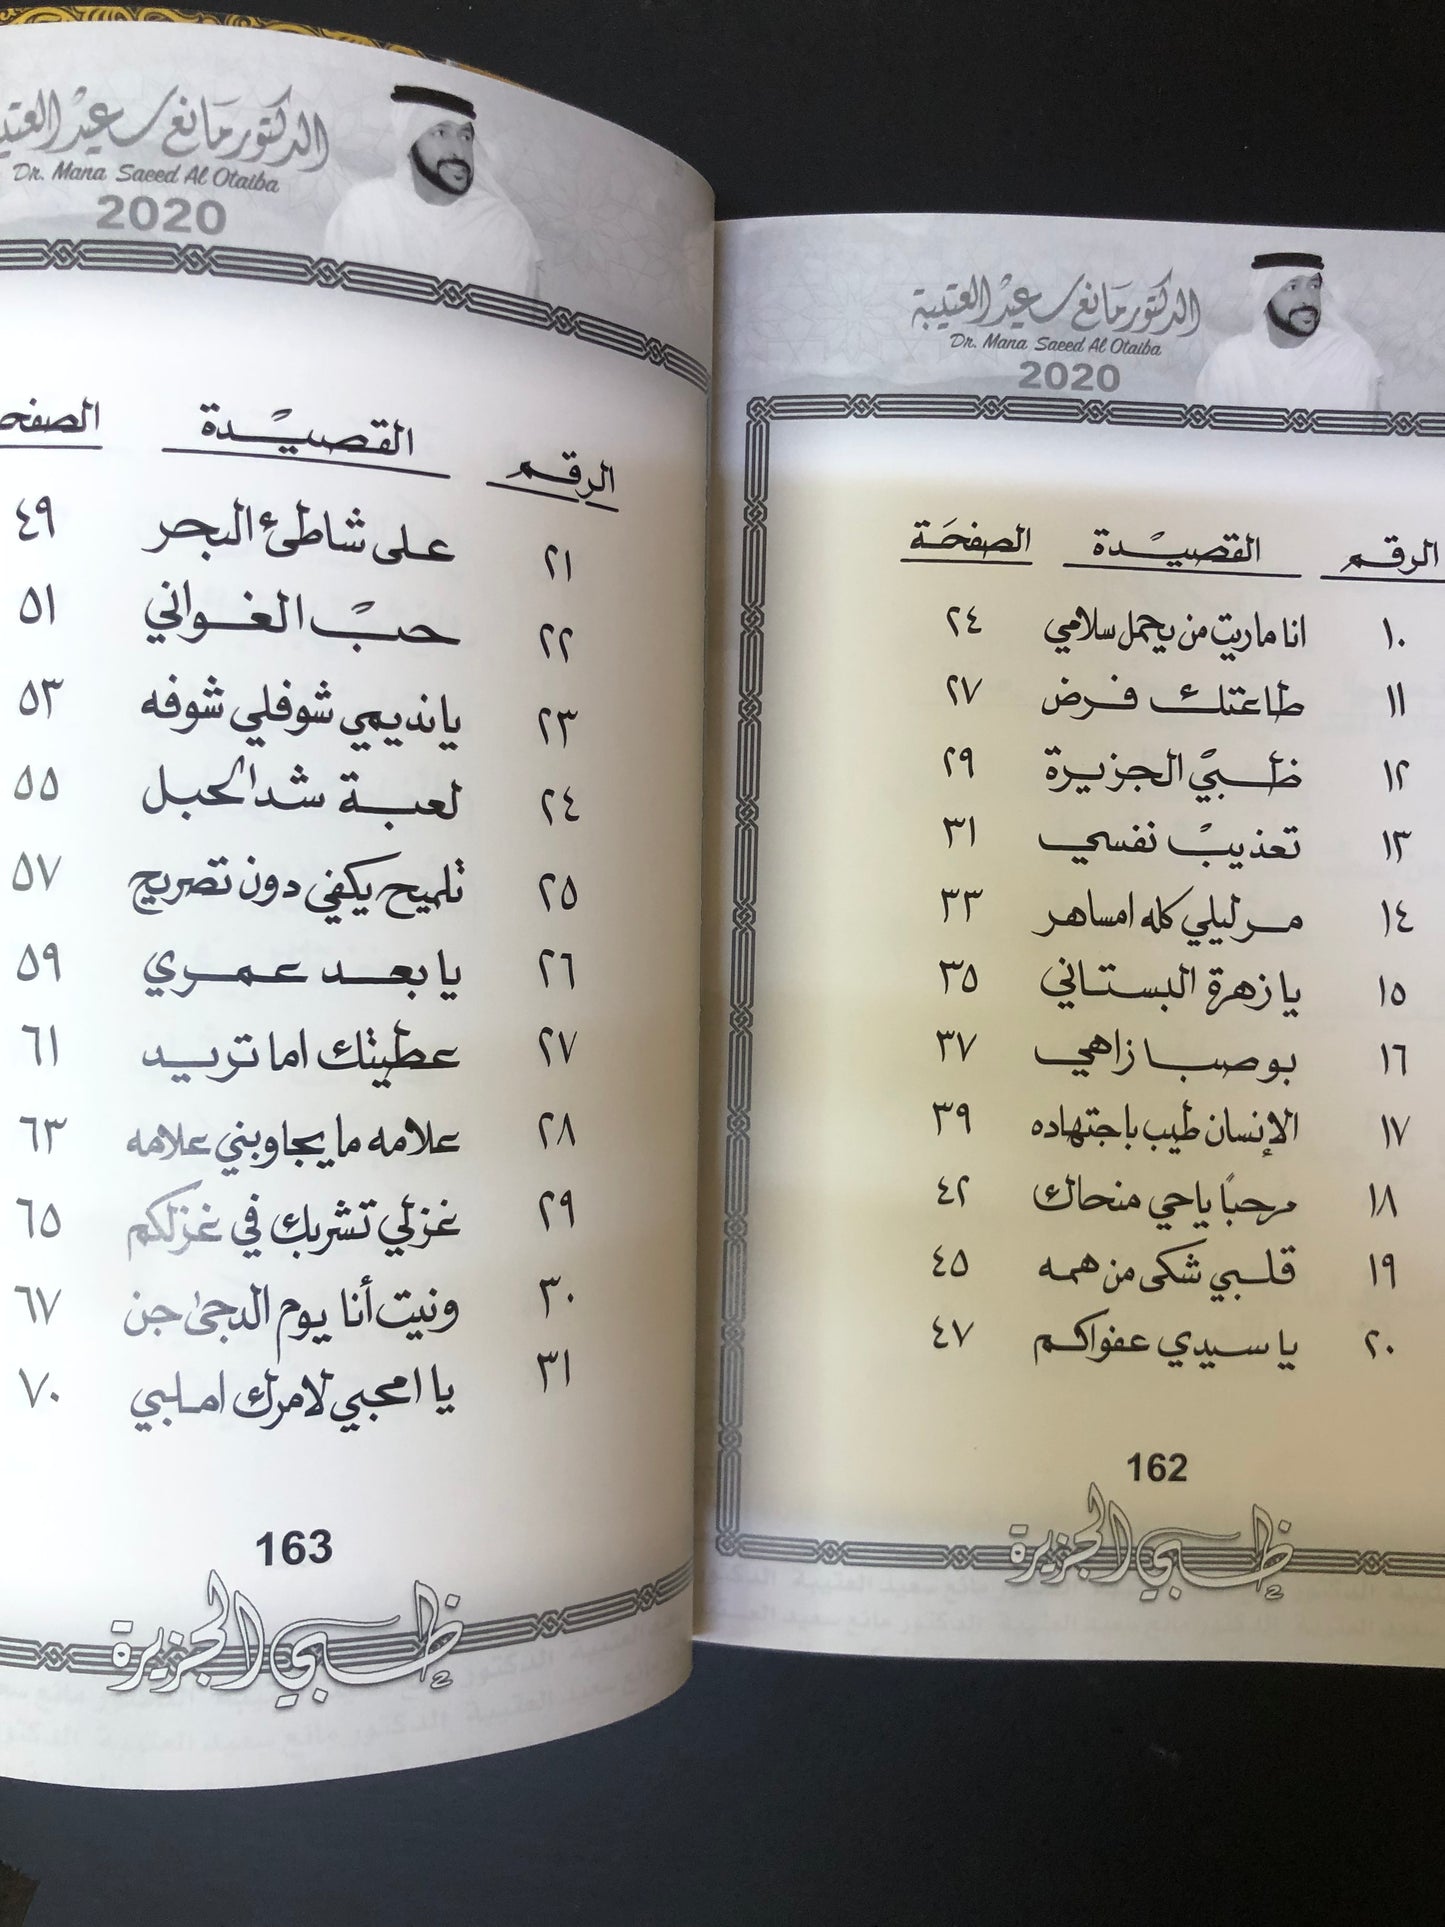 الدكتور مانع سعيد العتيبة
Dr. Mana Saeed Al Otaiba
2020
الرقم القصيدة الصفحة
١٠ انا ماريت من يحمل سلامي ٢٤
١١ طاعتك فرض ٢٧
١٢ ظبي الجزيرة ٢٩
١٣ تعذيب نفسي ٣١
١٤ مر ليلي كله امساهر ٣٣
١٥ يا زهرة البستاني ٣٥
١٦ بوصبا زاهي ٣٧
١٧ الإنسان طيب باجتهاده ٣٩
١٨ مرحباً ياحي منحاك ٤٢
١٩ قلبي شكى من همه ٤٥
٢٠ يا سيدي عفواكم ٤٧
162
ظبي الجزيرة
الدكتور مانع سعيد العتيبة
Dr. Mana Saeed Al Otaiba
2020
الرقم القصيدة الصفحة
٢١ على شاطئ البحر ٤٩
٢٢ حب الغواني ٥١
٢٣ يانديمي شوفلي شوفه ٥٣
٢٤ لعبة شد الحبل ٥٥
٢٥ تلميح يكفي دون تصريح ٥٧
٢٦ يا بعد عمري ٥٩
٢٧ عطيتك اما تريد ٦١
٢٨ علامه ما يجاوبني علامه ٦٣
٢٩ غزلي تشربك في غزلكم ٦٥
٣٠ ونيت أنا يوم الدجى جن ٦٧
٣١ يا امحبي لامرك املبي ٧٠
163
ظبي الجزيرة